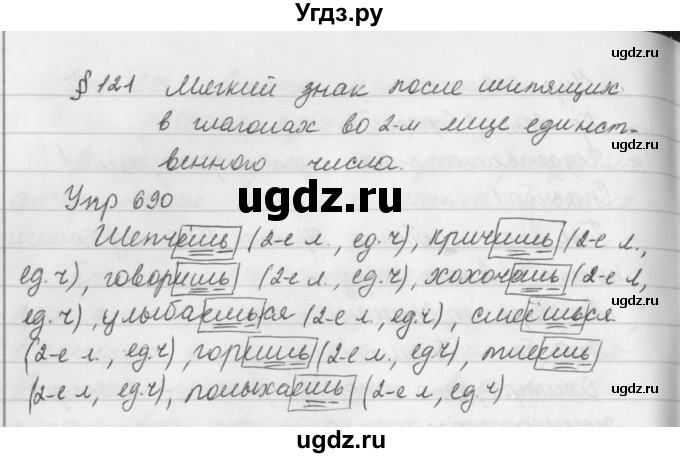 Угдз.ру
ugdz.ru
§ 121 Мягкий знак после шипящих
в глаголах во 2-м лице единст-
ugdz.ru
венного числа.
Упр 690
ugdz.ru
Шепчешь (2-е л., ед.ч), кричишь (2-е л.,
ед.ч), говоришь (2-е л., ед.ч), хохочешь (2-е л,
ед.ч), улыбаешься (2-е л., ед.ч), смеёшься
(2-е л., ед.ч), горишь (2-е л., ед.ч), тлеешь
(2-е л, ед.ч), полыхаешь (2-е л, ед.ч)
ugdz.ru
ugdz.ru